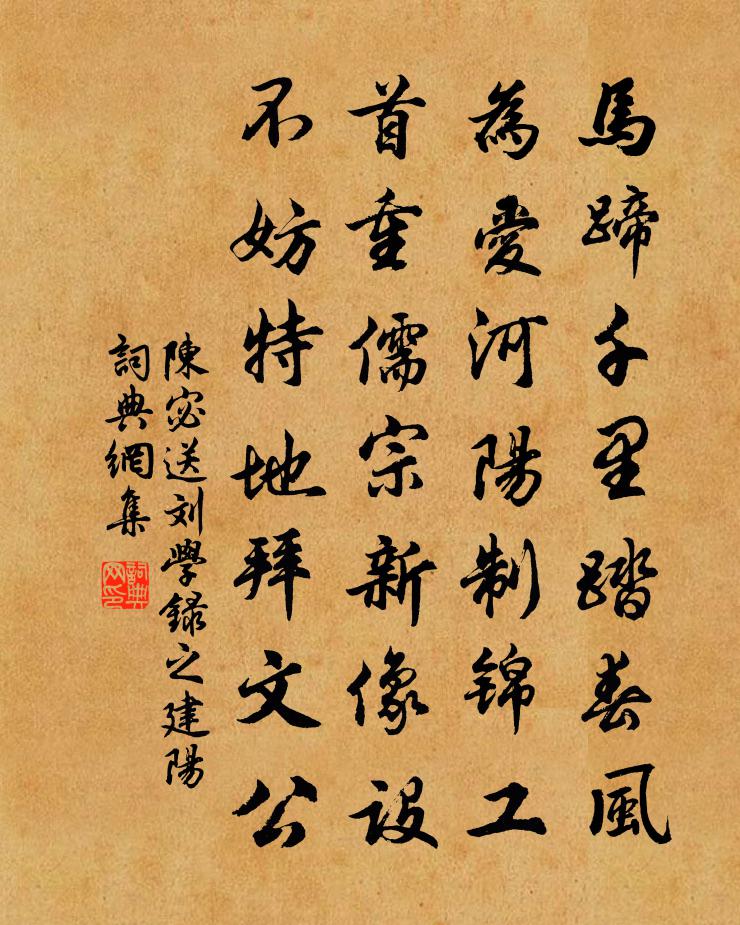 馬蹄千里踏春風
為愛河陽制錦工
首重儒宗新像設
不妨特地拜文公
陳宓送刘學錄之建陽
詞典網集
詞典网印